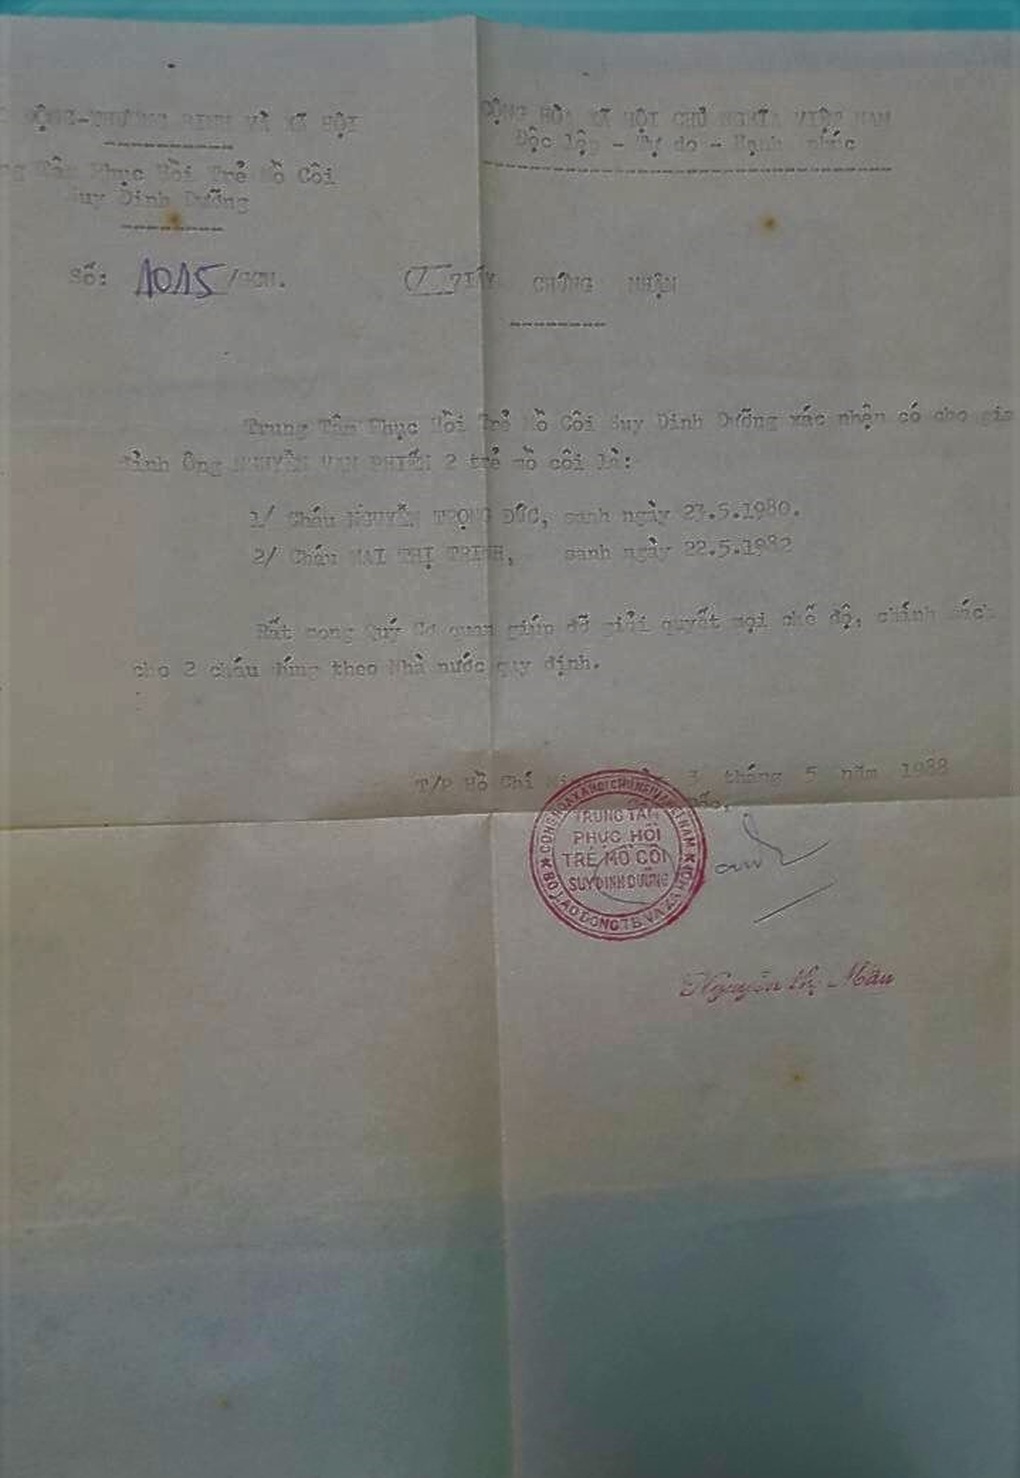 ĐỘNG-THƯƠNG BINH VÀ XÃ HỘI
CỘNG HÒA XÃ HỘI CHỦ NGHĨA VIỆT NAM
Độc lập - Tự do - Hạnh phúc
Tâm Phục Hồi Trẻ Mồ Côi
Suy Dinh Dưỡng
Số: 1015/GCN.
GIẤY CHỨNG NHẬN
Trung Tâm Phục Hồi Trẻ Mồ Côi Suy Dinh Dưỡng xác nhận có cho gia
đình Ông NGUYỄN VĂN PHIẾN 2 trẻ mồ côi là:
1/ Cháu NGUYỄN TRỌNG ĐỨC, sanh ngày 27.5.1980.
2/ Cháu MAI THỊ TRINH, sanh ngày 22.5.1982
Rất mong Quý Cơ quan giúp đỡ giải quyết mọi chế độ, chính sách
cho 2 cháu đúng theo Nhà nước quy định.
T/P Hồ Chí Minh, ngày 3 tháng 5 năm 1988
CỘNG HÒA XÃ HỘI CHỦ NGHĨA VIỆT NAM
TRUNG TÂM
PHỤC HỒI
TRẺ MỒ CÔI
SUY DINH DƯỠNG
BỘ LAO ĐỘNG TB VÀ XÃ HỘI
Nguyễn thị Mân